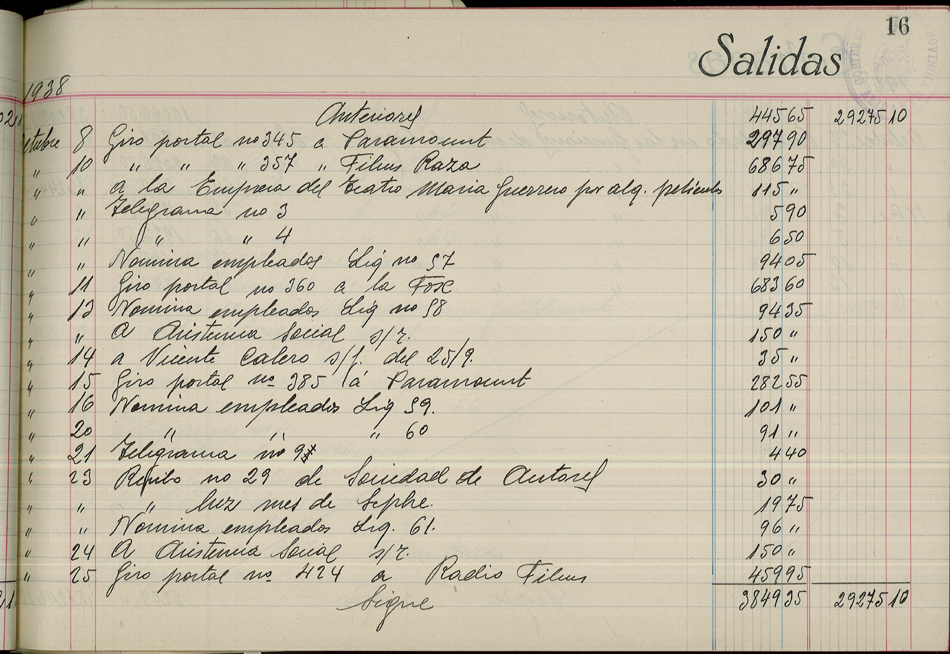 16
Salidas
1938
Anteriores 445 65 29275 10
Octubre 8 Giro postal nº 345 a Paramount 297 90
" 10 " " " 357 " Films Raza 686 75
" " a la Empresa del Teatro Maria Guerrero por alq. peliculas 115 "
" " Telegrama nº 3 5 90
" " " " 4 6 50
" " Nomina empleados Liq nº 57 94 05
" 11 Giro postal nº 360 a la Fox 683 60
" 13 Nomina empleados Liq nº 58 94 35
" " A Asistencia Social s/r. 150 "
" 14 a Vicente Calero s/f. del 25/9. 35 "
" 15 Giro postal nº 385 á Paramount 282 55
" 16 Nomina empleados Liq 59. 101 "
" 20 " " " 60 91 "
" 21 Telegrama nº 9 4 40
" 23 Recibo nº 29 de Sociedad de Autores 30 "
" " " luz mes de Sepbre. 19 75
" " Nomina empleados Liq. 61. 96 "
" 24 A Asistencia Social s/r. 150 "
" 25 Giro postal nº 424 a Radio Films 459 95
Sigue 3849 35 29275 10